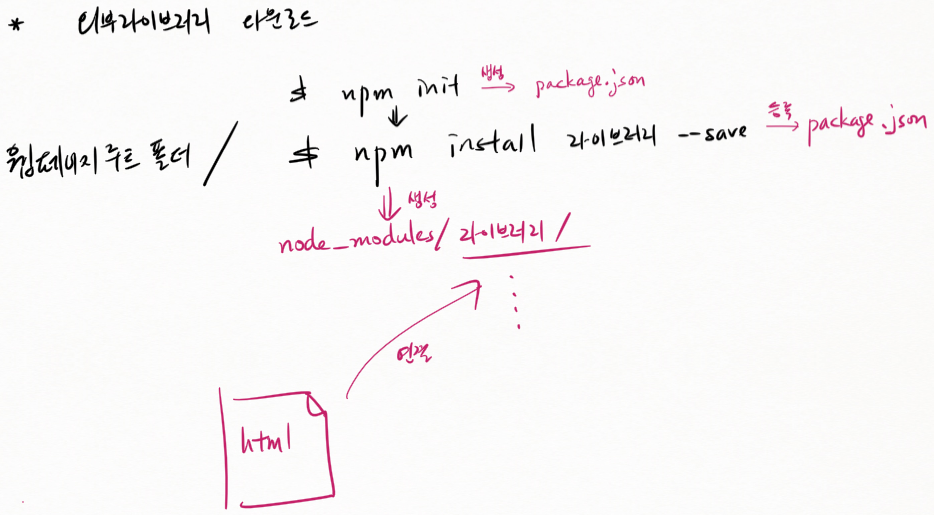 * 외부라이브러리 다운로드
$ npm init 생성 → package.json
↓
웹페이지 루트 폴더 / $ npm install 라이브러리 --save 등록 → package.json
⇓ 생성
node_modules/라이브러리/
연결
html